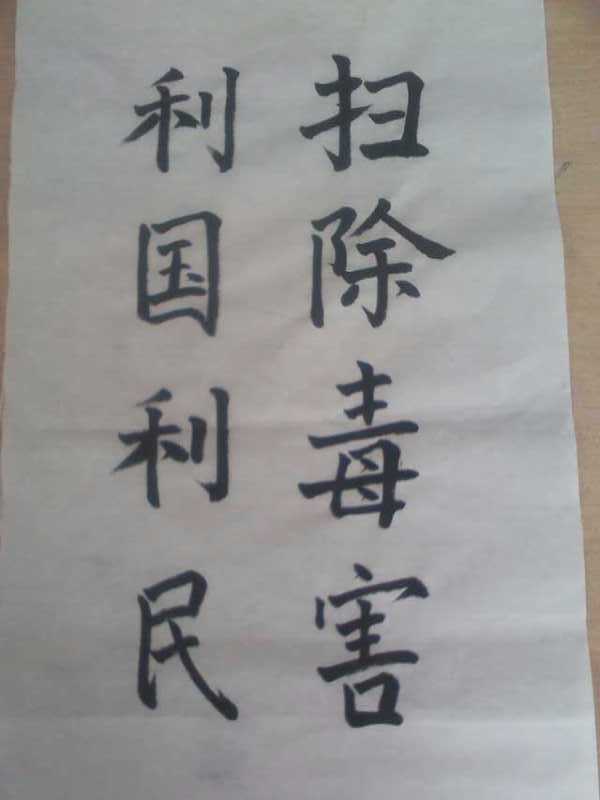 扫除毒害
利国利民